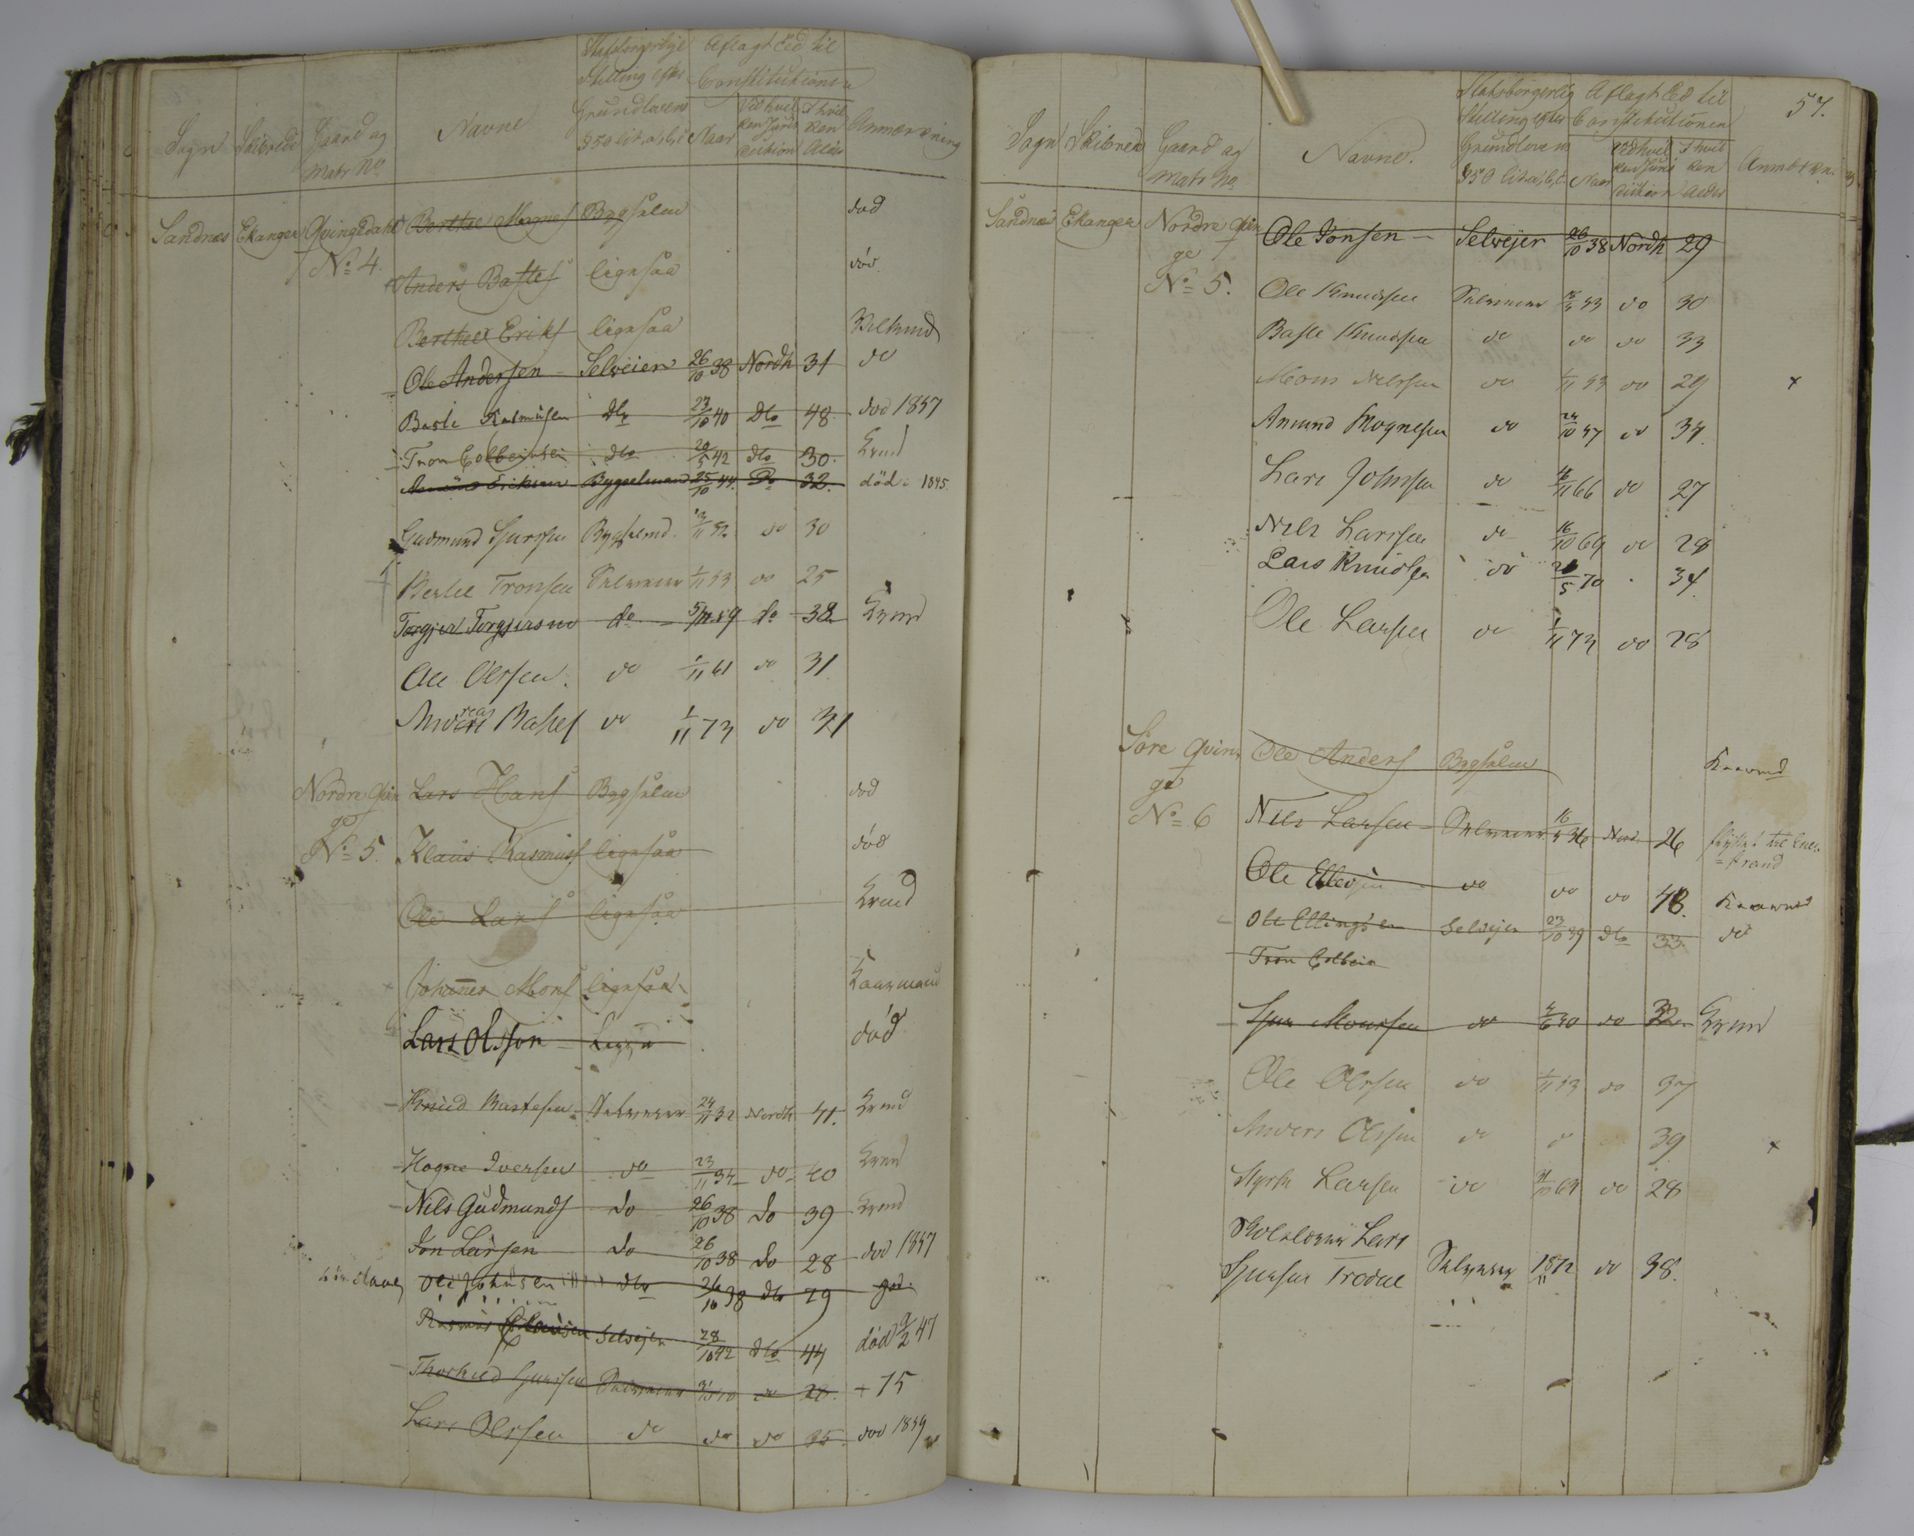 Sogn Skibrede Gaard og Matr No Navne Statsborgerlige Stilling efter Grundlovens § 50 lit a, b, c Aflagt Eed til Constitutionen
Naar Ved hvilken Juris diction I hvilken Alder Anmærkning
Sandnes Ekanger Qvingedahl Berthel Mognes Bygselm død
No 4. Anders Bastes ligesaa død
Berthel Eriks ligesaa
Ole Andersen Selveier 26/10 38 Nordh 31 do
Baste Rasmussen dto 23/10 40 dto 48 død 1857
Tron Colbeinsen dto 42 dto 30 Krmd
Eriksen Bygselmand 25/10 44 Do 32 død 1845
Gudmund Sjursen Bygselmd. 52 do 30
Berthel Tronsen Selveier 1/11 53 do 25
Torgjer Torgjersen do 5/11 59 do 38 Krmd
Ole Olssen do 1/11 61 do 31
Andreas Bastes do 1/11 73 do 31
Nordre Qvinge Lars Hans Bygselm død
No 5. Klaus Rasmuss ligesaa død
Ole Lars ligesaa Krmd
Johannes Mons ligesaa Kaarmand
Lars Olsson død
Knud Bastesen Selveier 24/11 32 Nordh 41. Krmd
Hogne Iversen do 23/11 34 do 40 Krmd
Nils Gudmunds do 26/10 38 do 39 Krmd
Jon Larsen do 26/10 38 do 28 død 1857
Ole Johnsen dto 26/10 38 dto 29
Rasmus Clausen Selvejer 28/10 42 dto 44 død 9/2 47
Selveier do 28 + 75
Lars Olssen do do do 35 død 1859
57.
Sogn Skibrede Gaard og Matr No Navne. Statsborgerlig Stilling efter Grundloven § 50 lit a, b, c Aflagt Eed til Constitutionen
Naar Ved hvilken Juris diction I hvilken Alder Anmærkn.
Sandnes Ekanger Nordre Qvinge Ole Jonsen Selvejer 26/10 38 Nordh 29
No 5. Ole Knudsen Selveier 53 do 30
Baste Knudsen do do do 33
Mons Nilssen do 1/11 53 do 29 x
Amund Mognesen do 24/10 57 do 34.
Lars Johnsen do 66 do 27
Nils Larssen do 16/10 69 do 28
Lars Knudsen do 5 70 34
Ole Larsen do 1/11 73 do 28
Søre Qvinge Ole Anders Bygselm Kaarmd
No 6 Nils Larsen Selveier 36 Nord 26
Ole Ellevsen do do do 48. Kaarmd
Ole Ellingsen Selvejer 23/10 39 dto 33 do
Tron Colbein
Sjur Monsen do 50 do 32 Krmd
Ole Olssen do 1/11 53 do 37
Anders Olssen do 39 x
Styrk Larsen do 69 do 28
Skolelærer Lars
Sjursen Tredal Selveier 1872 do 38.